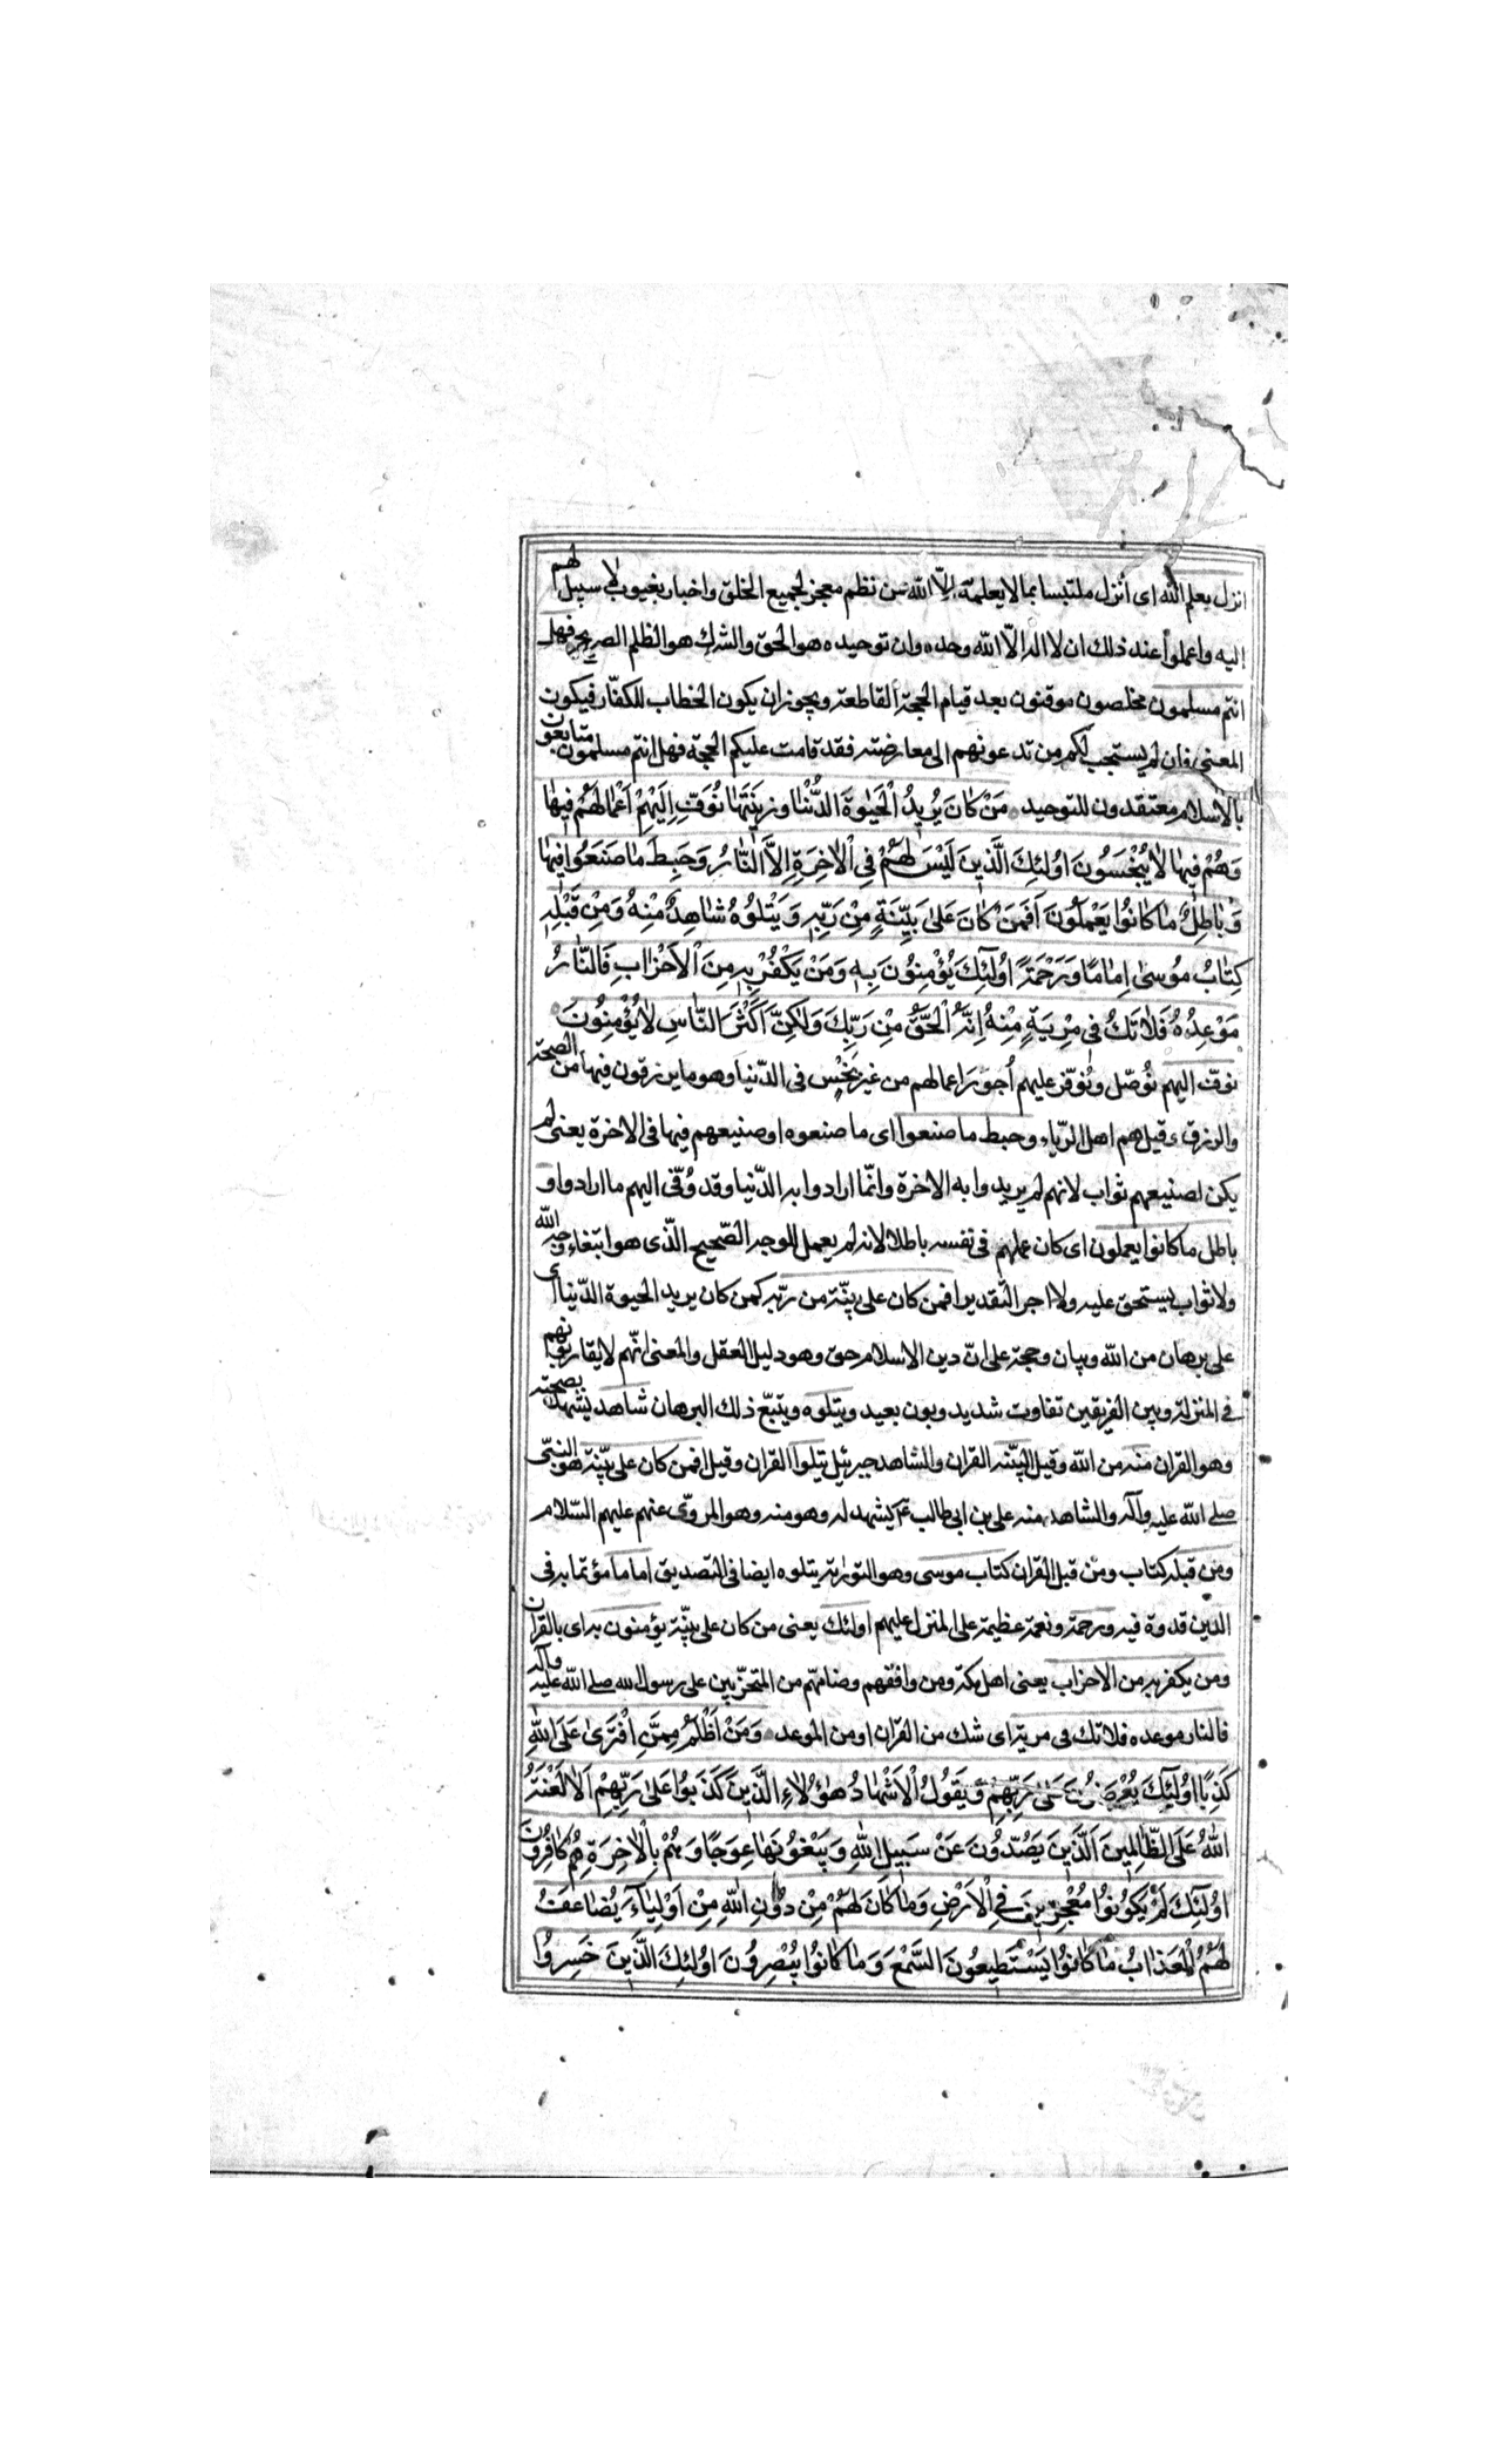 انزل بعلم الله اى أنزل ملتبسا بما لا يعلمه الّا الله من نظم معجز لجميع الخلق واخبار بغيوب لا سبيل لهم
إليه واعملوا عند ذلك ان لا اله الّا الله وحده وان توحيده هو الحق والشرك هو الظلم الصريح فهل
انتم مسلمون مخلصون موقنون بعد قيام الحجة القاطعة ويجوز ان يكون الخطاب للكفّار فيكون
المعنى فان لم يستجب لكم من تدعونهم الى معارضته فقد قامت عليكم الحجة فهل انتم مسلمون متابعون
بالاسلام معتقدون للتوحيد مَنْ كَانَ يُرِيدُ الْحَيٰوةَ الدُّنْيٰا وَزِينَتَهٰا نُوَفِّ اِلَيْهِمْ اَعْمٰالَهُمْ فِيهٰا
وَهُمْ فِيهٰا لٰا يُبْخَسُونَ اوُلئِكَ الَّذِينَ لَيْسَ لَهُمْ فِي الْاٰخِرَةِ اِلَّا النّٰارُ وَحَبِطَ مٰا صَنَعُوا فِيهٰا
وَبٰاطِلٌ مٰا كٰانُوا يَعْمَلُونَ اَفَمَنْ كٰانَ عَلىٰ بَيِّنَةٍ مِنْ رَبِّهِ وَيَتْلُوهُ شٰاهِدٌ مِنْهُ وَمِنْ قَبْلِهِ
كِتٰابُ مُوسىٰ اِمٰامًا وَرَحْمَةً اوُلٰئِكَ يُؤْمِنُونَ بِهِ وَمَنْ يَكْفُرْ بِهِ مِنَ الْاَحْزٰابِ فَالنّٰارُ
مَوْعِدُهُ فَلٰا تَكُ فِي مِرْيَةٍ مِنْهُ اِنَّهُ الْحَقُّ مِنْ رَبِّكَ وَلٰكِنَّ اَكْثَرَ النّٰاسِ لٰا يُؤْمِنُونَ
نوفّ اليهم نُوصّل ونُوفّر عليهم أجورَ اعمالهم من غير بَخْسٍ فى الدّنيا وهو ما يرزقون فيها من الصحة
والرزق وقيل هم اهل الرّياء وحبط ما صنعوا اى ما صنعوه او صنيعهم فيها فى الاخرة يعنى لم
يكن لصنيعهم ثواب لانهم لم يريدوا به الاخرة وانّما ارادوا به الدّنيا وقد وُفّى اليهم ما ارادوا و
باطل ما كانوا يعملون اى كان عملهم فى نفسه باطلا لانه لم يعمل للوجه الصّحيح الّذى هو ابتغاء وجه الله
ولا ثواب يستحق عليه ولا اجر التقدير افمن كان على بيّنة من ربّه كمن كان يريد الحيوة الدّنيا اى
على برهان من الله وبيان وحجة على انّ دين الاسلام حق وهو دليل العقل والمعنى انّهم لا يقاربونهم
فى المنزلة وبين الفريقين تفاوت شديد وبون بعيد ويتلوه ويتبّع ذلك البرهان شاهد يشهد بصحته
وهو القران منه من الله وقيل البيّنه القران والشاهد جبرئيل يتلوا القران وقيل افمن كان على بيّنة هو النبىّ
صلى الله عليه وآله والشاهد منه على بن ابى طالب ع يشهد له وهو منه وهو المروىّ عنهم عليهم السّلام
ومن قبله كتاب ومن قبل القران كتاب موسى وهو التورٰية يتلوه ايضا فى التصديق اماما مؤتما به فى
الدين قدوة فيه ورحمة ونعمة عظيمة على المنزل عليهم اولئك يعنى من كان على بيّنة يؤمنون به اى بالقران
ومن يكفر به من الاحزاب يعنى اهل مكة ومن وافقهم وضامّهم من المتحزّبين على رسول الله صلى الله عليه وآله
فالنار موعده فلا تك فى مرية اى شك من القران او من الموعد وَمَنْ اَظْلَمُ مِمَّنِ افْتَرىٰ عَلَى اللّٰهِ
كَذِبًا اوُلٰئِكَ يُعْرَضُونَ عَلىٰ رَبِّهِمْ وَيَقُولُ الْاَشْهٰادُ هٰؤُلٰاءِ الَّذِينَ كَذَبُوا عَلىٰ رَبِّهِمْ اَلٰا لَعْنَةُ
اللّٰهُ عَلَى الظّٰالِمِينَ اَلَّذِينَ يَصُدُّونَ عَنْ سَبِيلِ اللّٰهِ وَيَبْغُونَهٰا عِوَجًا وَهُمْ بِالْاٰخِرَةِ هُمْ كٰافِرُونَ
اوُلٰئِكَ لَمْ يَكُونُوا مُعْجِزِينَ فِي الْاَرْضِ وَمٰا كٰانَ لَهُمْ مِنْ دُونِ اللّٰهِ مِنْ اَوْلِيٰاءَ يُضٰاعَفُ
لَهُمُ الْعَذٰابُ مٰا كٰانُوا يَسْتَطِيعُونَ السَّمْعَ وَمٰا كٰانُوا يُبْصِرُونَ اوُلئِكَ الَّذِينَ خَسِرُوا